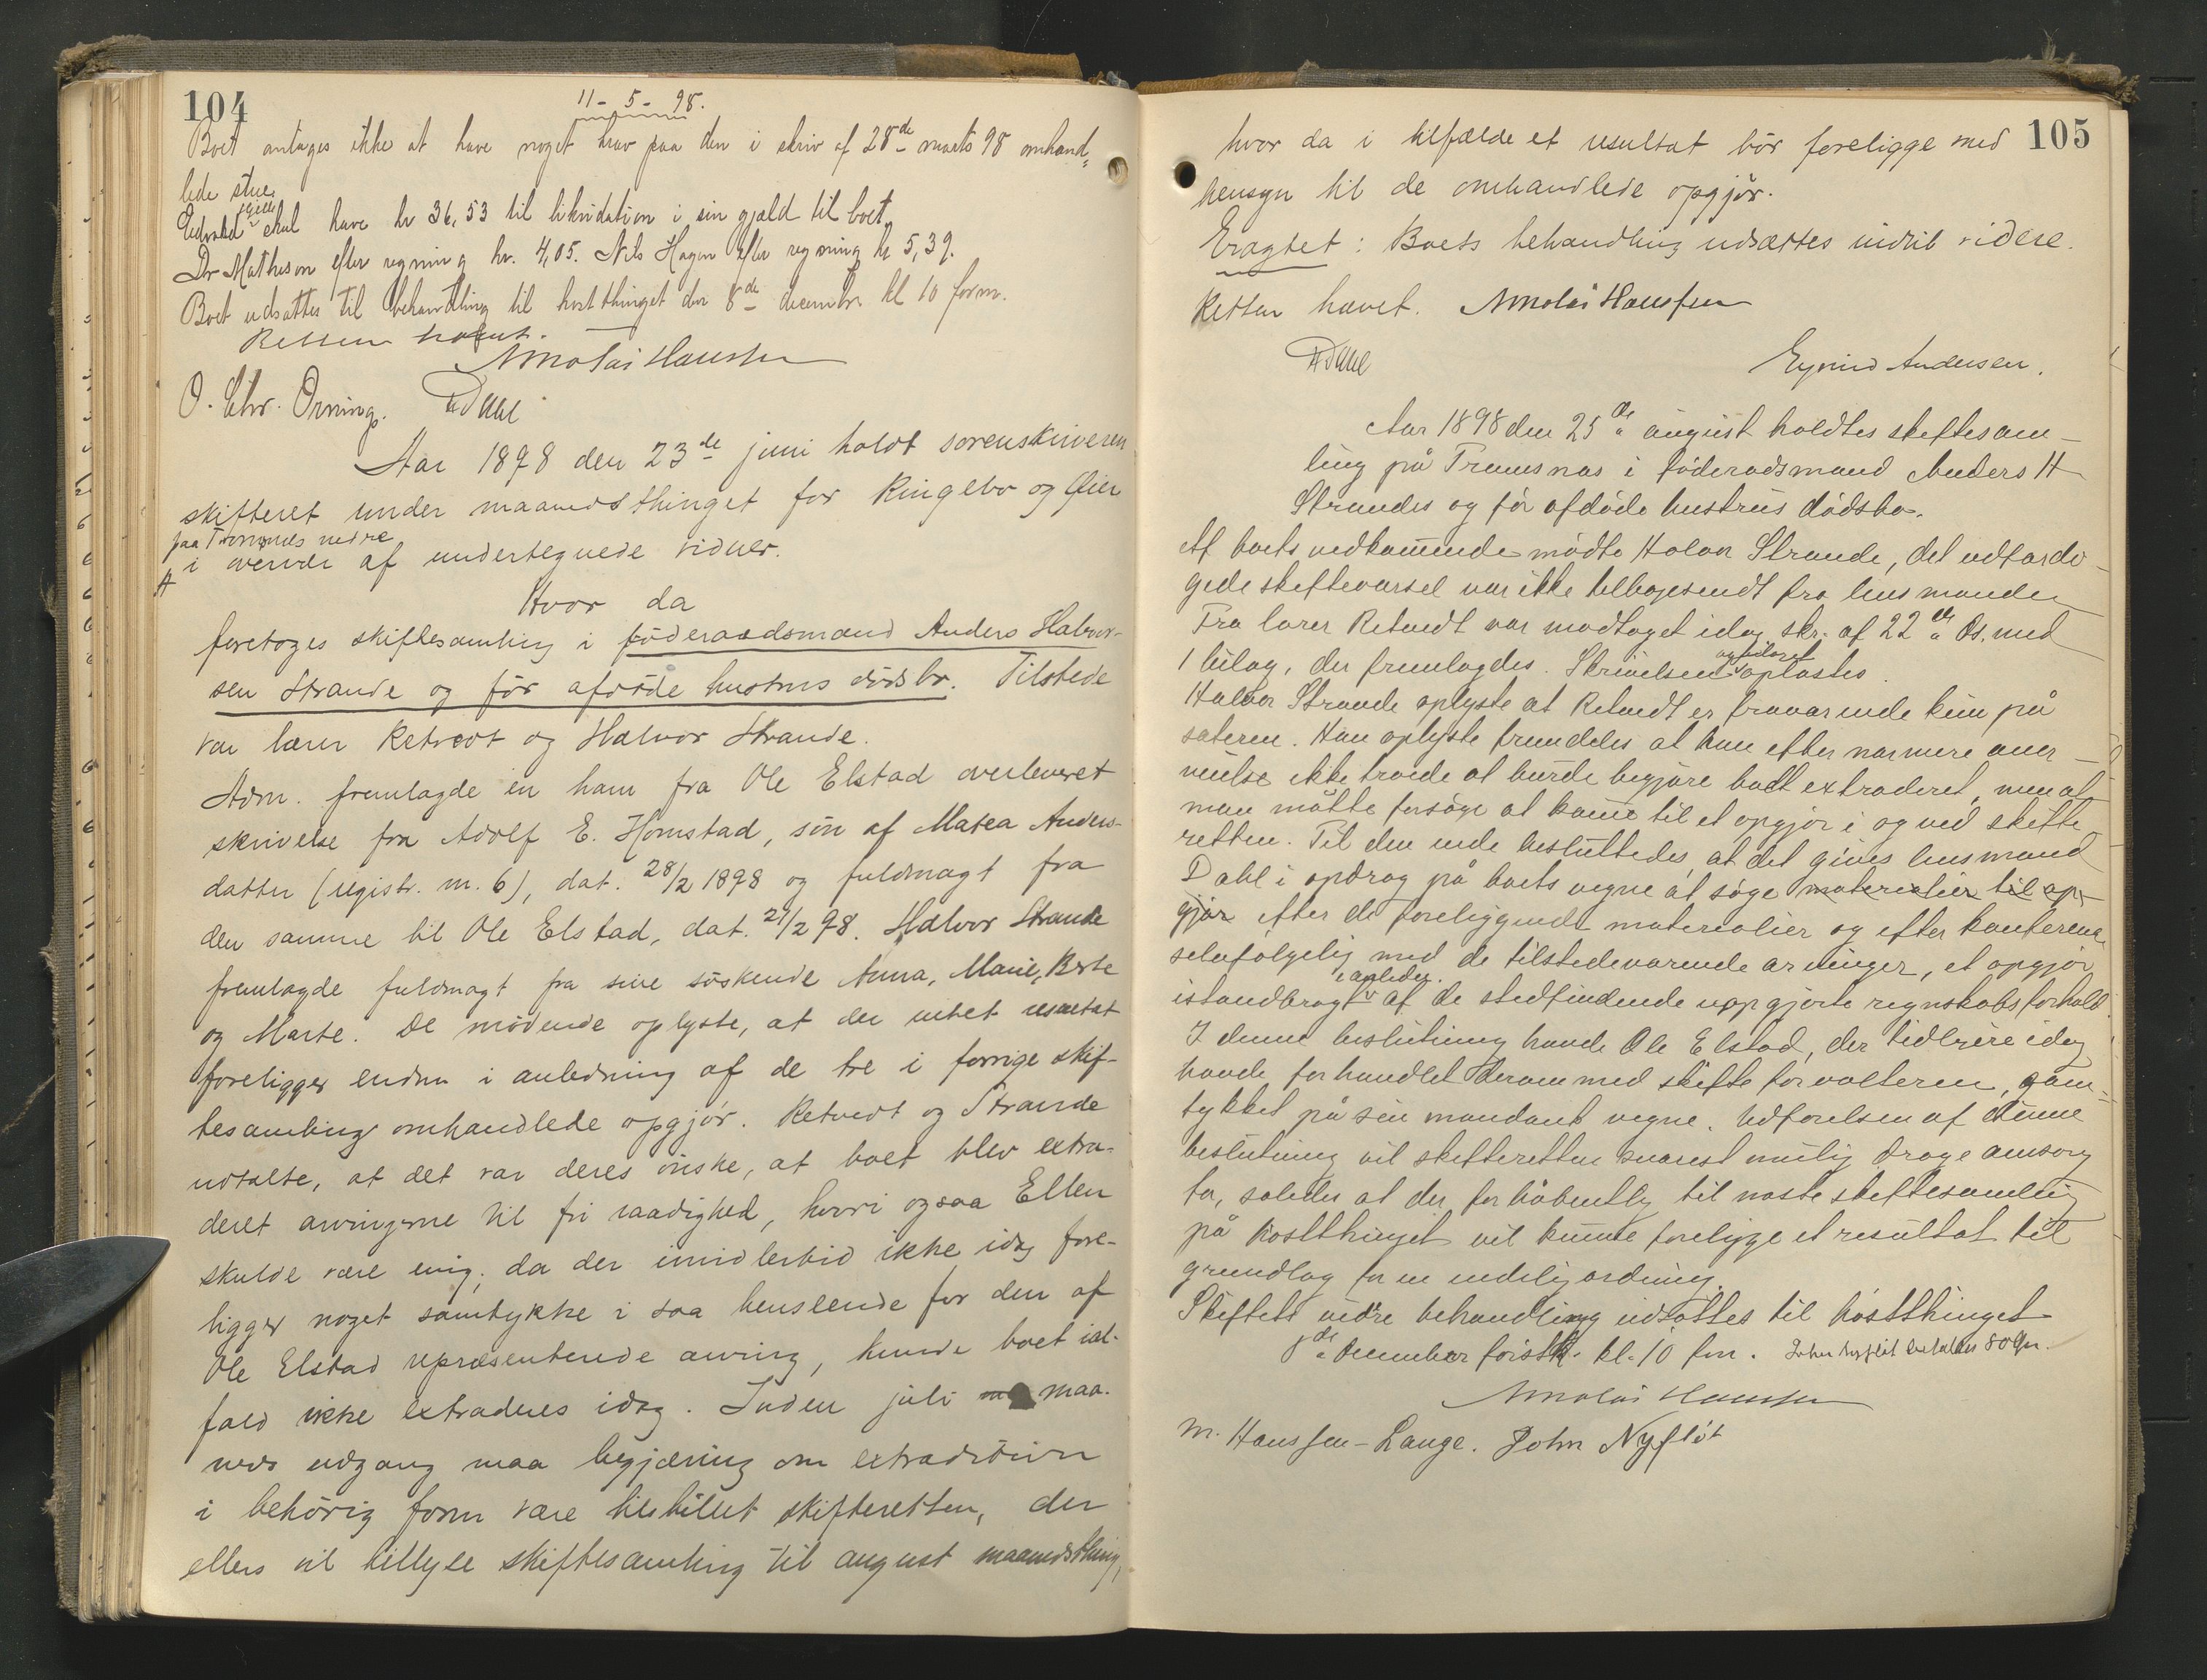 104
11 - 5 - 98.
Boet antages ikke at have noget krav paa den i skriv af 28de marts 98 omhand-
lede stue.
Edvard skal have kr 36,53 til likvidation i sin gjæld til boet,
Dr Matheson efter regning kr. 4,05. Nils Hagen efter regning kr 5,39.
Boet udsattes til behandling til høstthinget den 8de decembr kl 10 form.
Retten hævet.
Nikolai Hanssen
O. Chr. Orning. Dahl
Aar 1898 den 23de juni holdt sorenskriveren
skifteret under maanedsthinget for Ringebo og Øier
paa Tromsnæs nedre
i overvær af undertegnede vidner.
Hvor da
foretoges skiftesamling i føderaadsmand Anders Halvor-
sen Strande og før afdøde hustrus dødsbo. Tilstede
var lærer Retvedt og Halvor Strande.
Adm. fremlagde en ham fra Ole Elstad overleveret
skrivelse fra Adolf E. Homstad, søn af Matea Anders-
datter (registr. nr. 6), dat. 28/2 1898 og fuldmagt fra
den samme til Ole Elstad, dat. 27/2 98. Halvor Strande
fremlagde fuldmagt fra sine søskende Anna, Marie, Berte
og Marte. De mødende oplyste, at der intet resultat
foreligger endnu i anledning af de tre i forrige skif-
tesamling omhandlede opgjør. Retvedt og Strande
udtalte, at det var deres ønske, at boet blev extra-
deret arvingerne til fri raadighed, hvori ogsaa Ellen
skulde være enig; da der imidlertid ikke idag fore-
ligger noget samtykke i saa henseende for den af
Ole Elstad repræsenterede arving, kunde boet ial-
fald ikke extraderes idag. Inden juli maa-
neds udgang maa begjæring om extradition
i behørig form være tilstillet skifteretten, der
ellers vil tillyse skiftesamling til august maanedsthing,
105
hvor da i tilfælde et resultat bør foreligge med
hensyn til de omhandlede opgjør.
Eragtet: Boets behandling udsættes indtil videre.
Retten hævet. Nikolai Hanssen
Dahl
Eyvind Andersen.
Aar 1898 den 25de august holdtes skiftesam-
ling på Tromsnæs i føderadsmand Anders H
Strandes og før afdøde hustrus dødsbo.
Af boets vedkommende mødte Halvor Strande, det udfærdi-
gede skiftevarsel var ikke tilbagesendt fra lensmanden
Fra lærer Retvedt var modtaget idag skr. af 22de ds. med
1 bilag, der fremlagdes. Skrivelsen og bilaget oplæstes.
Halvor Strande oplyste at Retvedt er fraværende kun på
sæteren. Han oplyste fremdeles at han efter nærmere over-
veielse ikke troede at burde begjære boet extraderet, men at
man måtte forsøge at komme til et opgjør i og ved skifte
retten. Til den ende besluttedes, at det gives lensmand
Dahl i opdrag på boets vegne at søge materialier til op-
gjør efter de foreliggende materialier og efter konferense
selvfølgelig med de tilstedeværende arvinger, et opgjør
istandbragt i anledn. af de stedfindende uopgjorte regnskabsforhold.
I denne beslutning havde Ole Elstad, der tidligere idag
havde forhandlet derom med skifteforvalteren, sam-
tykket på sin mandants vegne. Udførelsen af denne
beslutning vil skifteretten snarest mulig drage omsorg
for, således at der forhåbentlig til næste skiftesamling
på høstthinget vil kunne foreligge et resultat til
grundlag for en endelig ordning.
Skiftets vidre behandling udsattes til høstthinget
8de december førstk. kl. 10 fm. John Nyflöt betaltes 80 Øre.
Nikolai Hanssen
M. Hanssen-Lange. John Nyflöt